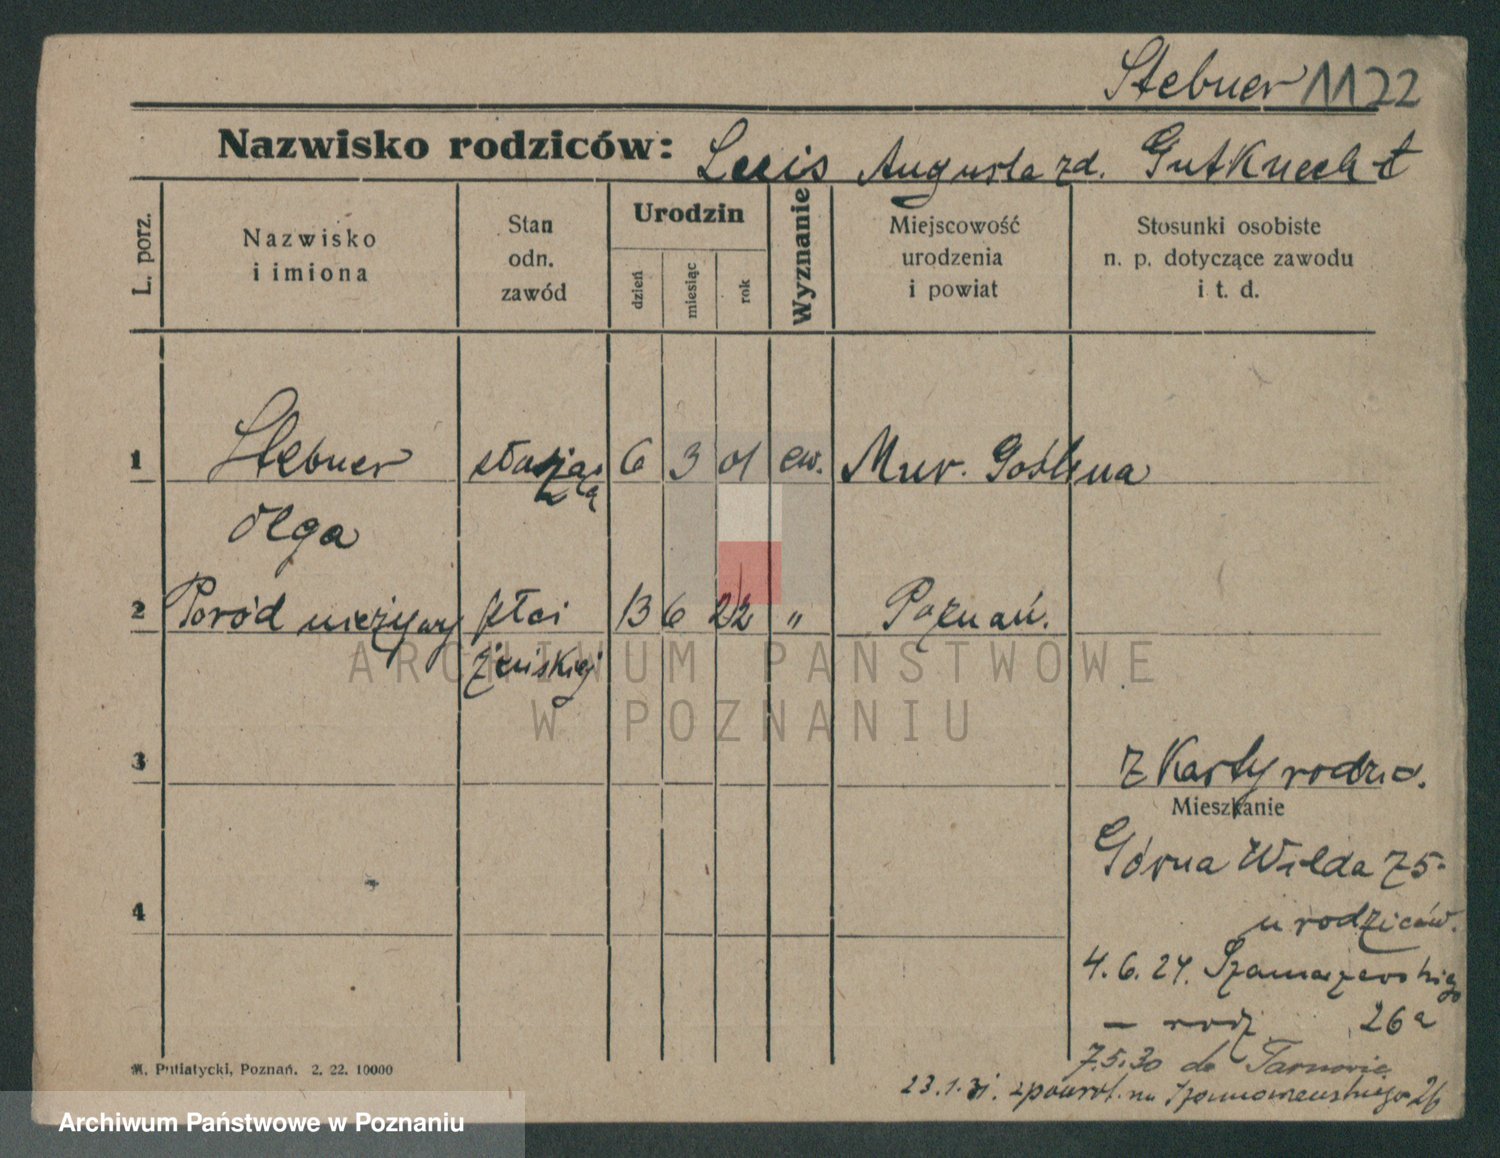 Stebner 1122
Nazwisko rodziców: Luis Augusta zd. Gutknecht
L. porz.
Nazwisko
i imiona
Stan
odn.
zawód
Urodzin
dzień
miesiąc
rok
Wyznanie
Miejscowość
urodzenia
i powiat
Stosunki osobiste
n. p. dotyczące zawodu
i t. d.
1 Stebner 6 3 01 ew. Mur. Goślina
Olga
2 Poród nieżywy płci 13 6 22 " Poznań.
żeńskiej
ARCHIWUM PAŃSTWOWE
W POZNANIU
3 z Karty rodzic.
Mieszkanie
Górna Wilda 75
4 u rodziców.
4.6.24. Szamarzewskiego
— rodz 26a
7.5.30 do Tarnowie
23.1.31. z powrot. na Szamarzewskiego 26
M. Putiatycki, Poznań. 2. 22. 10000
Archiwum Państwowe w Poznaniu